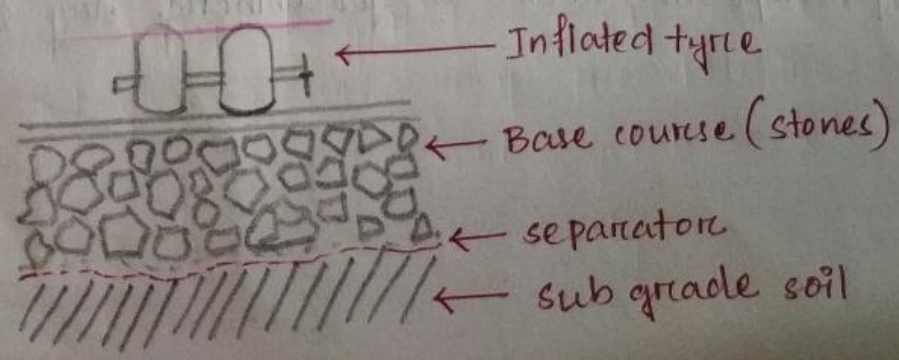 Inflated tyre
Base course (stones)
separator
sub grade soil